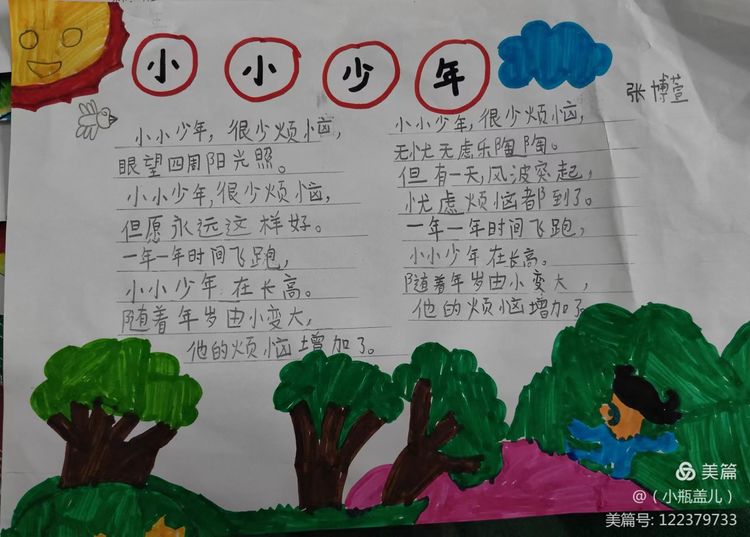 小小少年
张博萱
小小少年，很少烦恼，
眼望四周阳光照。
小小少年，很少烦恼，
但愿永远这样好。
一年一年时间飞跑，
小小少年在长高。
随着年岁由小变大，
他的烦恼增加了。
小小少年，很少烦恼，
无忧无虑乐陶陶。
但有一天，风波突起，
忧虑烦恼都到了。
一年一年时间飞跑，
小小少年在长高。
随着年岁由小变大，
他的烦恼增加了
美篇
@（小瓶盖儿）
美篇号: 122379733